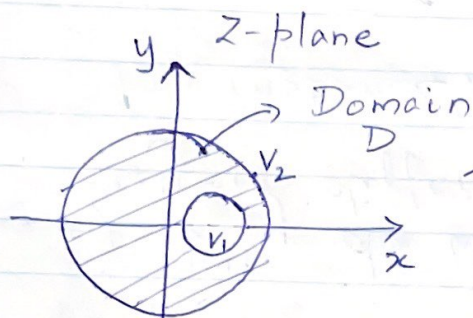 Z-plane
y
Domain
D
V2
V1
x